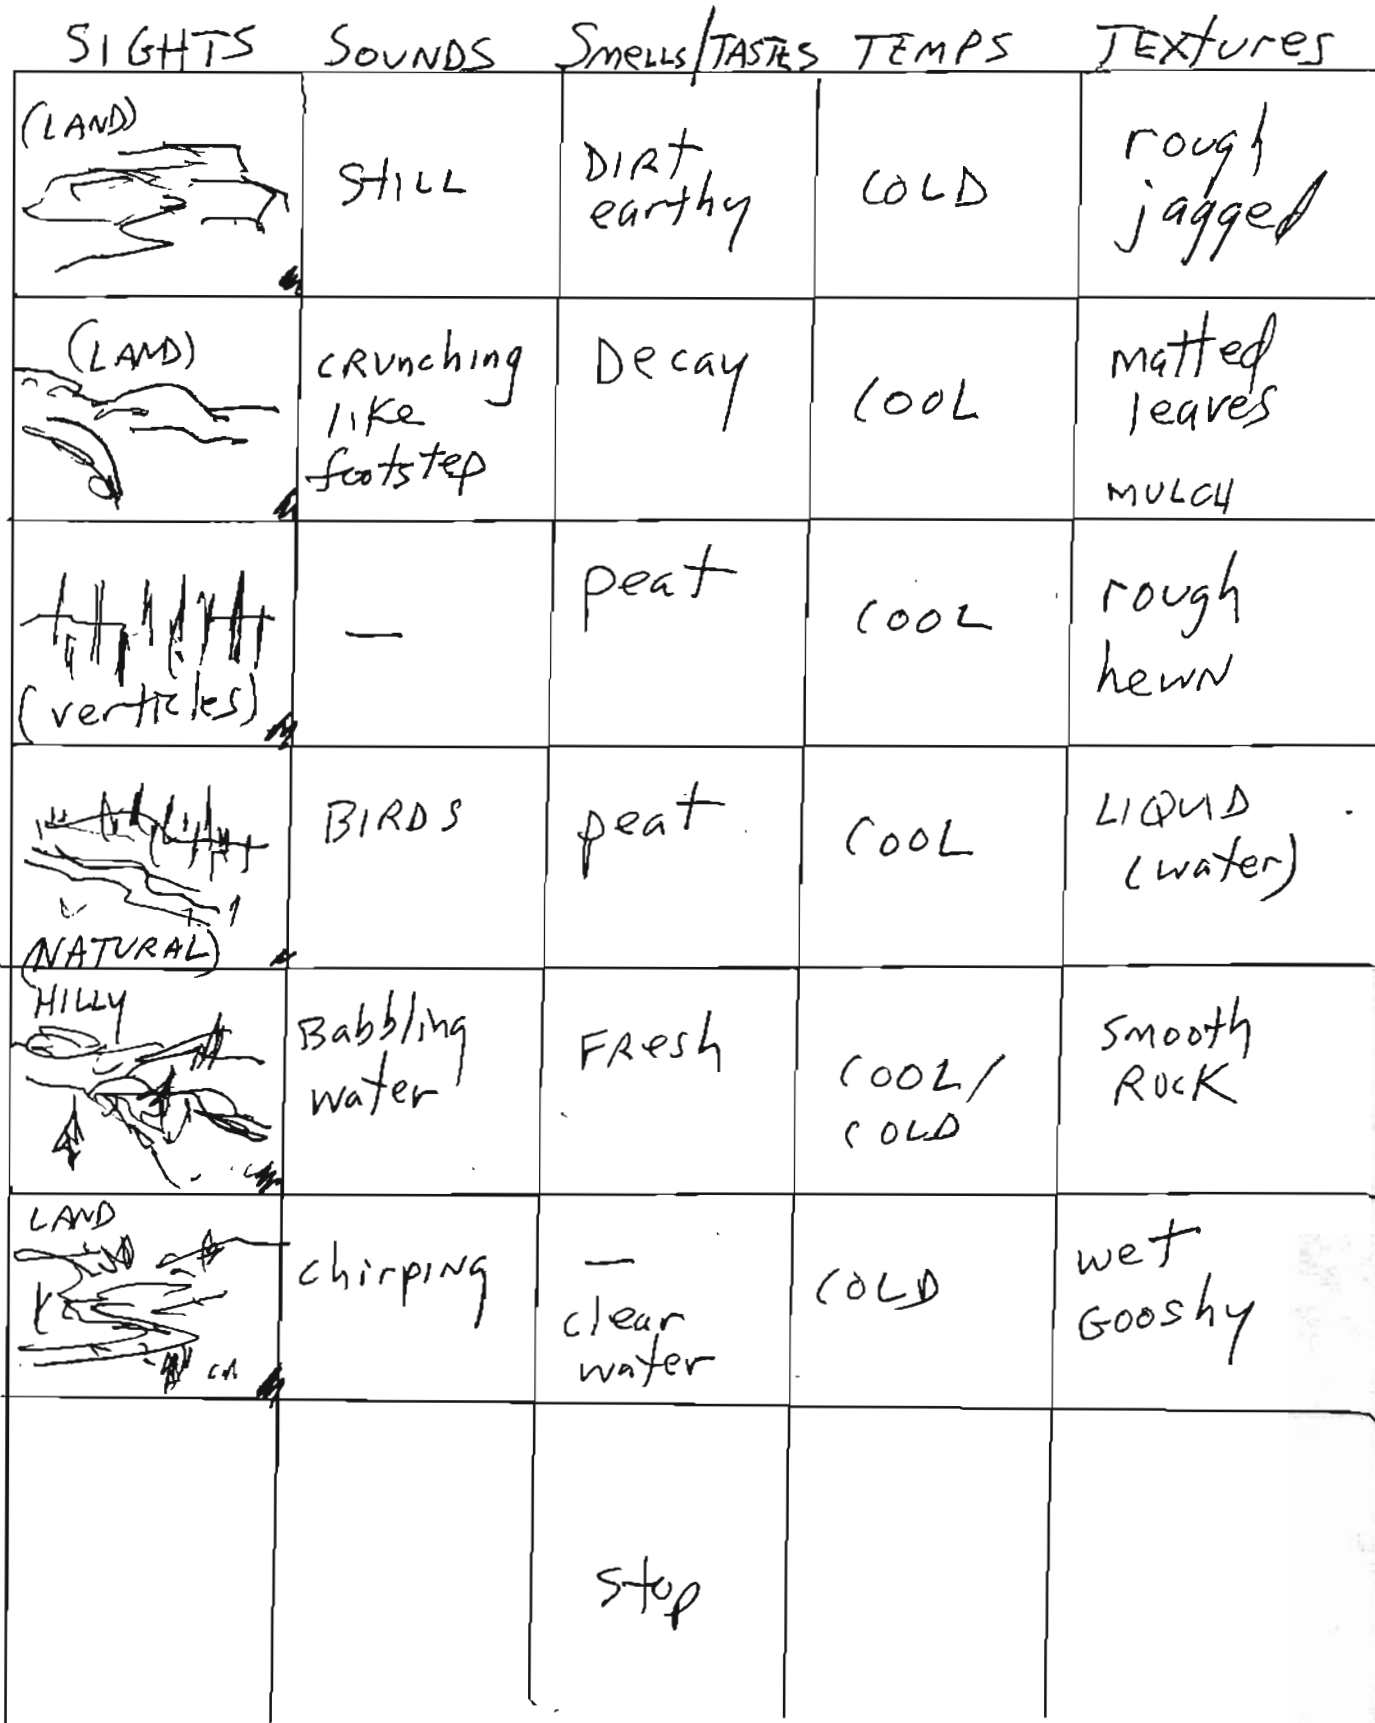 SIGHTS SOUNDS Smells/TASTES TEMPS TEXtures
(LAND)
STILL
DIRt
earthy
COLD
rough
jagged
(LAND)
CRUnching
like
footstep
Decay
COOL
matted
leaves
MULCH
(verticles)
—
peat
COOL
rough
hewN
(NATURAL)
BIRDS
peat
COOL
LIQUID
(water)
HILLY
Babbling
water
FResh
COOL/
COLD
Smooth
ROCK
LAND
chirpiNg
—
clear
water
COLD
wet
Gooshy
Stop